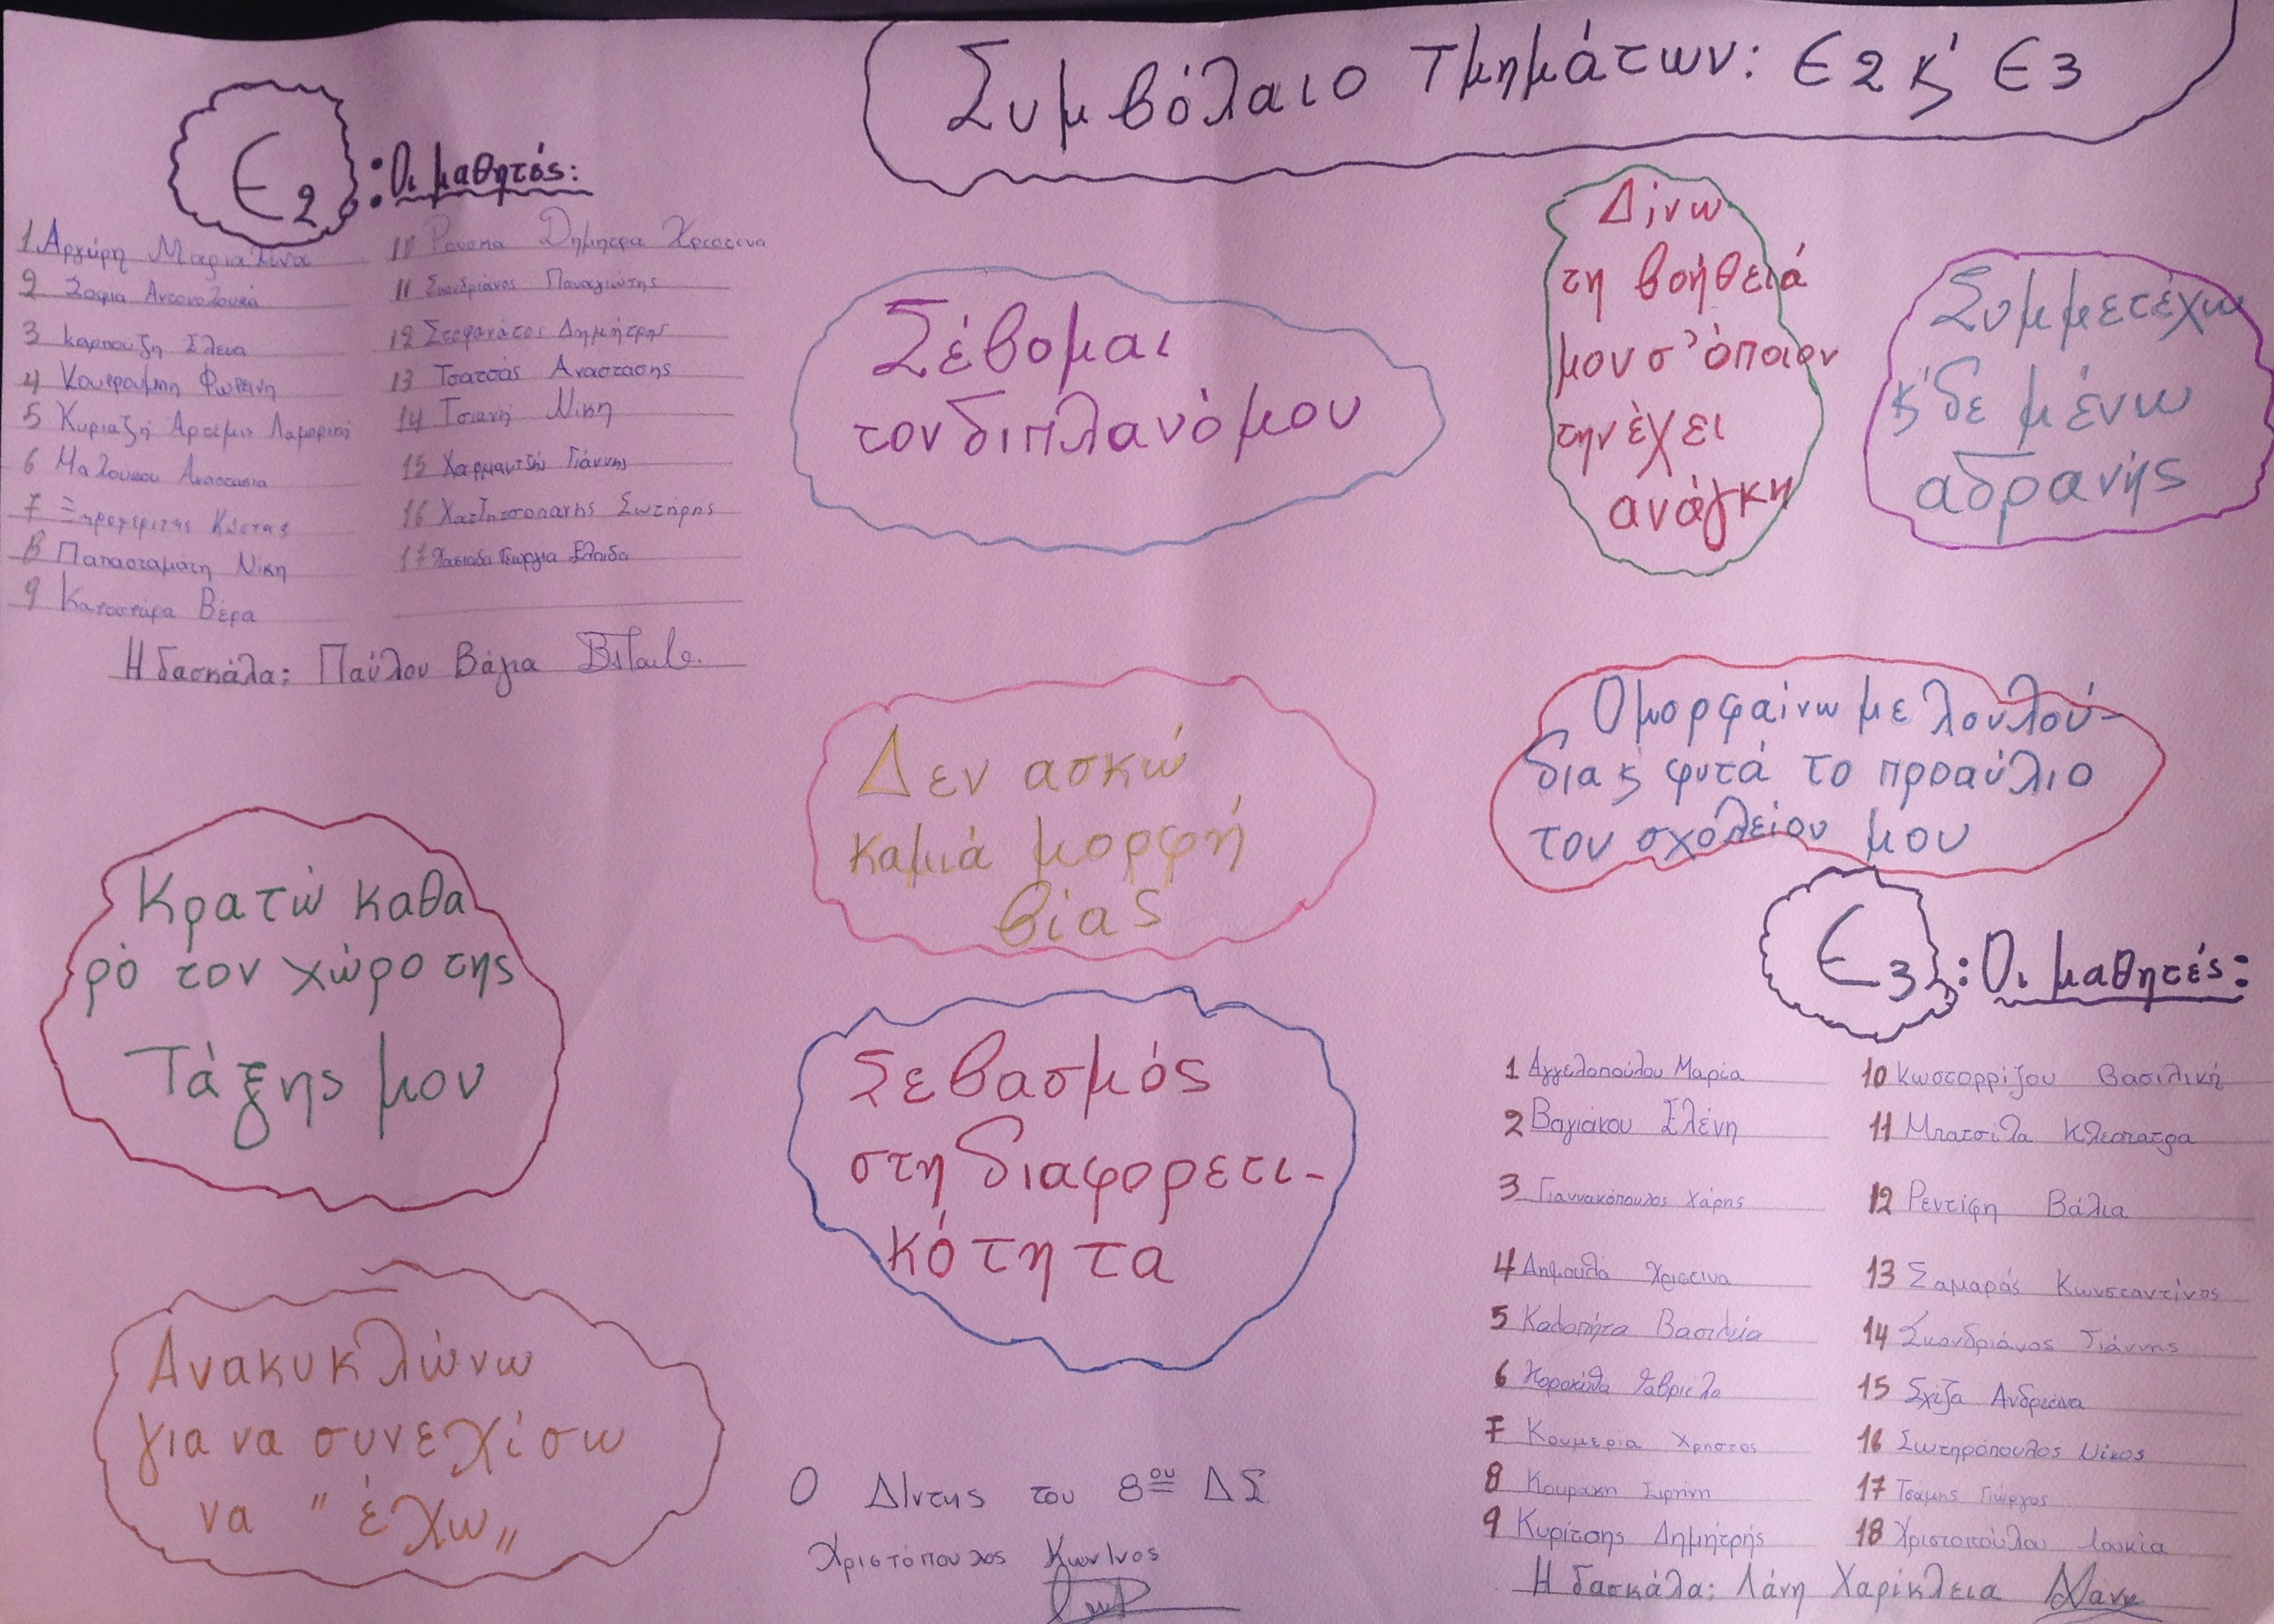 Συμβόλαιο Τμημάτων: Ε2 κ' Ε3
Ε2 : Οι μαθητές:
1 Αργύρη Μαρία Λίνα
2 Σοφια
3 καρπουζη Ελενα
4 Φωτεινη
5 Κυριαζή Αρτεμις Λαμπρινή
6 Αναστασια
7 Κώστας
8 Παπασταμάτη Νίκη
9 Βέρα
10 Δημητρα Χριστινα
11 Σκονδριάνος Παναγιώτης
12 Στεφανάτος Δημήτρης
13 Τσατσάς Αναστασης
14 Τσιανή Νίκη
15 Χαρμαντζής Γιάννης
16 Σωτήρης
17 Γεωργια Ελπιδα
Η δασκάλα: Παύλου Βάγια
Σέβομαι
τον διπλανό μου
Δίνω
τη βοήθειά
μου σ' όποιον
την έχει
ανάγκη
Συμμετέχω
κ' δε μένω
αδρανής
Δεν ασκώ
καμιά μορφή
βίας
Ομορφαίνω με λουλού-
δια κ φυτά το προαύλιο
του σχολείου μου
Κρατώ καθα
ρό τον χώρο της
Τάξης μου
Σεβασμός
στη διαφορετι-
κότητα
Ανακυκλώνω
για να συνεχίσω
να " έχω „
Ο Δ/ντης του 8ου ΔΣ
Χριστόπουλος Κων/νος
Ε3 : Οι μαθητές:
1 Αγγελοπούλου Μαρία
2 Βαγιάκου Ελένη
3 Γιαννακόπουλος Χάρης
4 Χριστινα
5 Καλοπήτα Βασιλεία
6 Γαβριέλα
7 Κουμερια Χρήστος
8 Κουρακη Ειρήνη
9 Κυρίτσης Δημήτρης
10 Κωστορρίζου Βασιλική
11 Μπατσιλα Κλεοπατρα
12 Ρεντίφη Βάλια
13 Σαμαράς Κωνσταντίνος
14 Σκονδριάνος Γιάννης
15 Σχίζα Ανδριάνα
16 Σωτηρόπουλος Νίκος
17 Τσάμης Γιώργος
18 Χριστοπούλου Λουκία
Η δασκάλα: Λάνη Χαρίκλεια